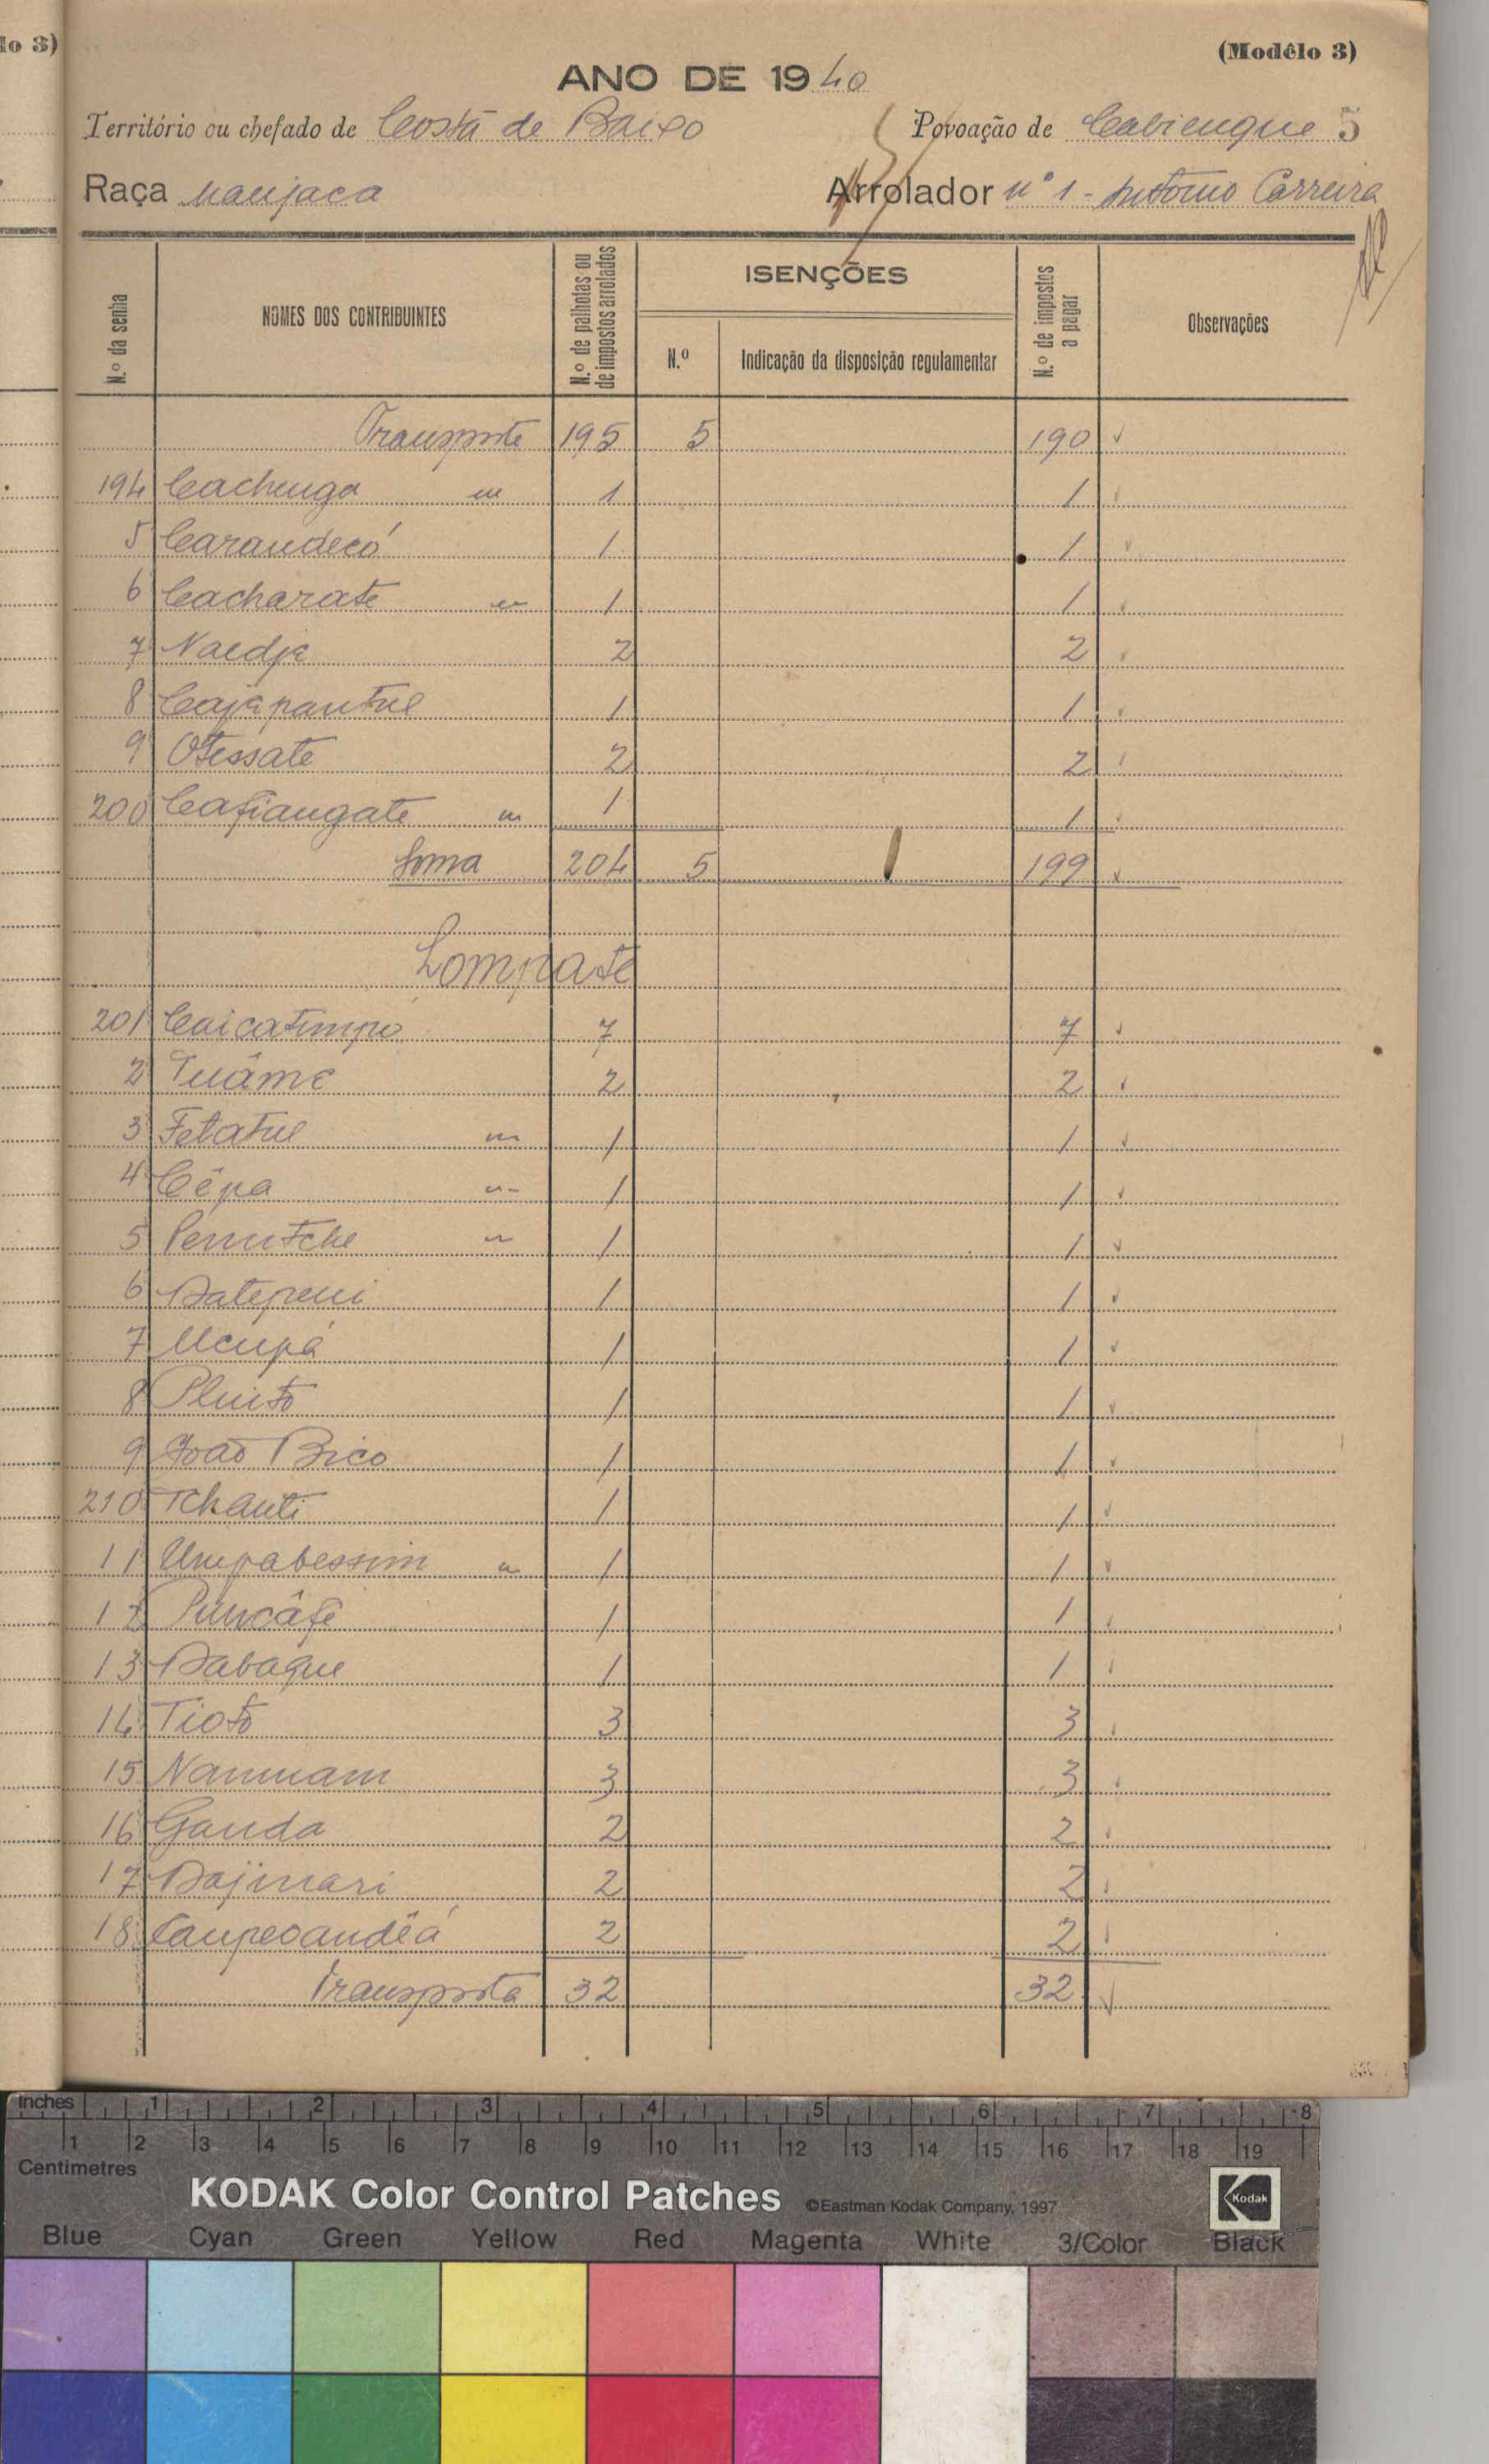 lo 3)
(Modêlo 3)
ANO DE 1940
Território ou chefado de Costa de Baixo Povoação de Cabienque 5
Raça manjaca Arrolador nº 1 - António Carreira
N.º da senha
NOMES DOS CONTRIBUINTES
N.º de palhotas ou de impostos arrolados
ISENÇÕES
N.º
Indicação da disposição regulamentar
N.º de impostos a pagar
Observações
Transporte 195 5 190
194 Cachenga m 1 1
5 Carandecó 1 1
6 Cacharate m 1 1
7 Naedja 2 2
8 Cajapantue 1 1
9 Otessate 2 2
200 Cafiangate m 1 1
Soma 204 5 199
Lompate
201 Caicatimpo 7 7
2 Tuâme 2 2
3 Fetatue m 1 1
4 Cêpa m 1 1
5 Penutche m 1 1
6 Datepeni 1 1
7 Ucupá 1 1
8 Pluito 1 1
9 João Bico 1 1
210 Tchanti 1 1
11 Umpabessim m 1 1
12 Puncâfe 1 1
13 Dabaque 1 1
14 Tioto 3 3
15 Nanmam 3 3
16 Ganda 2 2
17 Dajimari 2 2
18 Campeoandêá 2 2
Transporta 32 32
Inches 1 2 3 4 5 6 7 8
1 2 3 4 5 6 7 8 9 10 11 12 13 14 15 16 17 18 19
Centimetres
KODAK Color Control Patches ©Eastman Kodak Company, 1997 Kodak
Blue Cyan Green Yellow Red Magenta White 3/Color Black